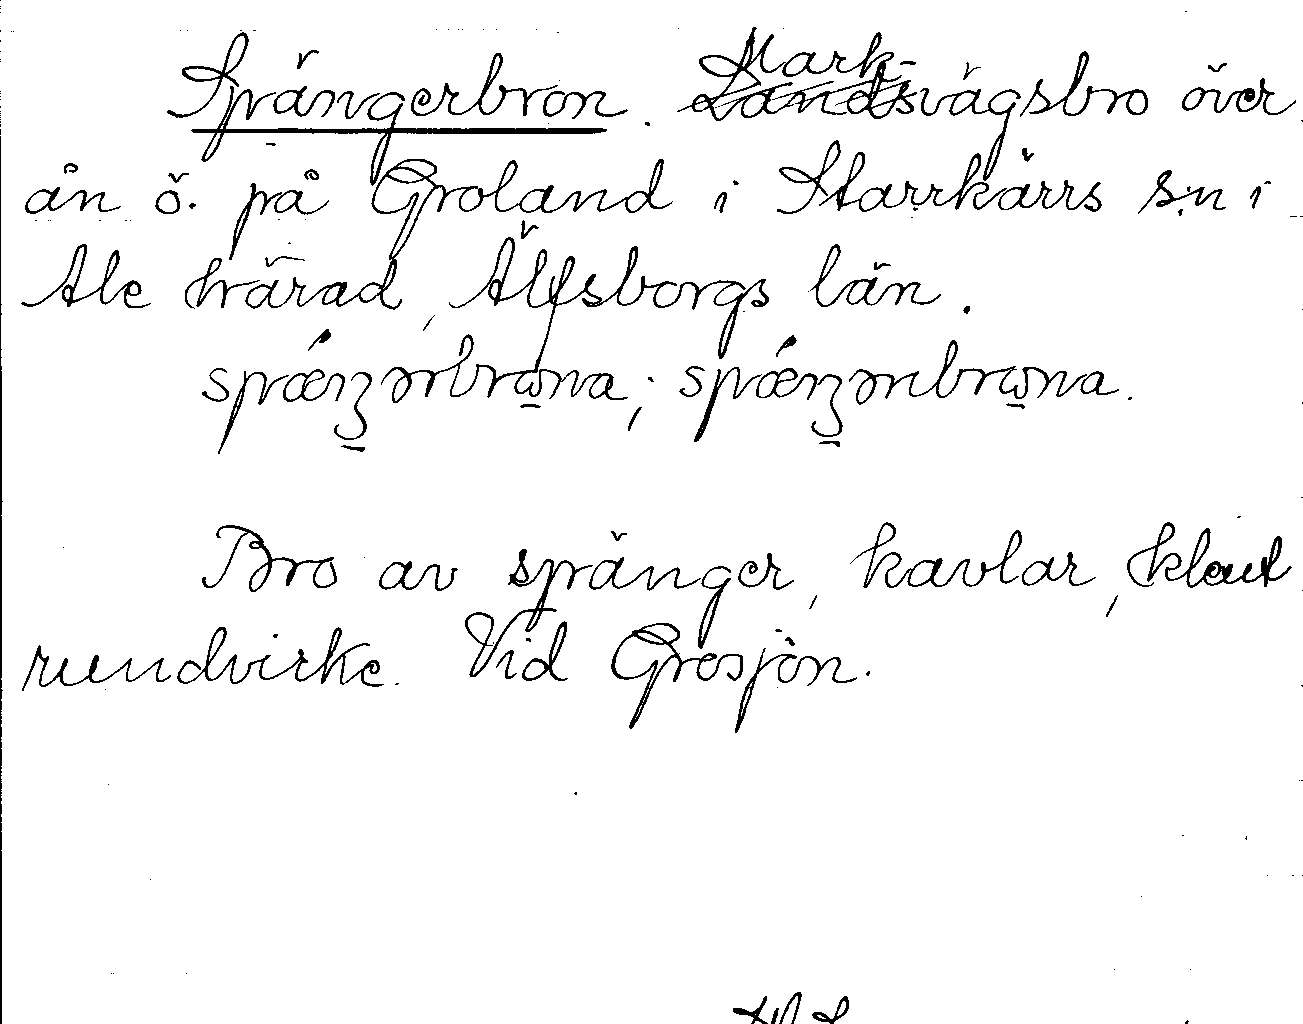 Sprängerbron. Markvägsbro över
ån ö. på Groland i Starrkärrs s:n i
Ale härad, Älfsborgs län.
sprǽŋərbrω̲na; sprǽŋənbrω̲na.
Bro av spränger, kavlar, kluvt
rundvirke. Vid Grosjön.